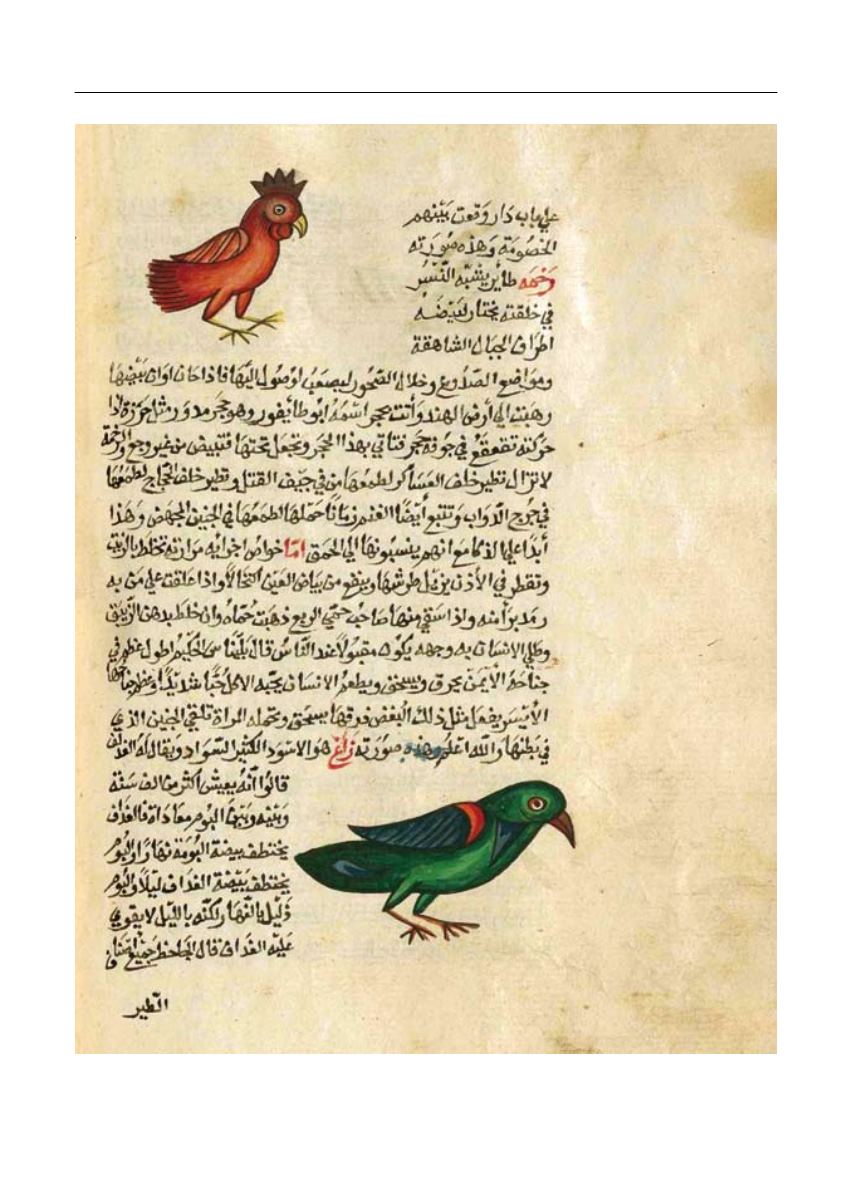 علي باب دار وقعت بينهم
الخصومة وهذه صورته
رخمه طاير يشبه النسر
في خلقته يختار لبيضه
اطراف الجبال الشاهقة
ومواضع الصدوع وخلال الصخور ليصعب الوصول اليها فاذا حان اوان بيضها
رهبت الي أرض الهند وأتت بحجر اسمه ابو طايفور وهو حجر مدور مثل خرزة اذا
حركته تقعقع في جوفه حجر فتاتي بهذا الحجر وتجعل تحتها فتبيض من غير وجع والرخمة
لاتزال تطير خلف العساكر لطمعها من في جيف القتل وتطير خلف الحجاج لطمعها
في جرح الدواب وتتبع أيضا الغنم زمانا حملها لطمعها في الجنين المجهض وهذا
أبدا علي الذكا مع انهم ينسبونها الي الحمق اما خواص اجزايه مرارته تخلط بالزيت
وتقطر في الأذن يزيل طرشها وينفع من بياض العين اكتحالا واذا علقت علي من به
رمد برأ منه واذا سقي منها صاحب حمي الربع ذهبت حماه وان خلط بدهن الزيبق
وطلي الانسان به وجهه يكون مقبولا عند الناس قال بليناس الحكيم اطول عظم في
جناحه الأيمن يحرق ويسحق ويطعم الانسان يحبه الاكل حبا شديدا وعظم جناحها
الأيسر يفعل مثل ذلك البغض فرقها يسحق وتحمله المراة تلقي الجنين الذي
في بطنها والله اعلم وهذه صورته زاغ هو الاسود الكثير السواد ويقال له الغداف
قالوا أنه يعيش اكثر من الف سنة
وبينه وبين البوم معاداة فالغداف
يختطف بيضة البومة نهارا والبوم
يختطف بيضة الغداف ليلا والبوم
ذليل بالنهار لكنه بالليل لا يقوي
عليه الغداف قال الجاحظ جميع اصناف
الطير